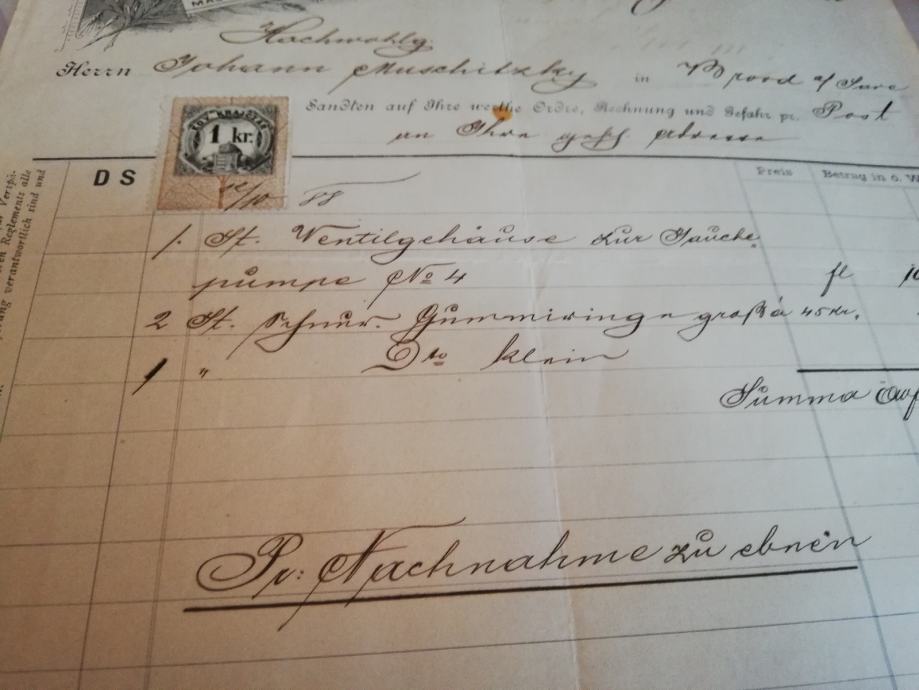 Hochwohlg.
Herrn Johann Muschitzky in Brood a/ Save
Sandten auf Ihre werthe Ordre, Rechnung und Gefahr pr. Post
an Ihre gesch Adresse
1 kr.
DS
Preis Betrag in ö. W
12/10 88
1. St. Ventilgehäuse zur Jauche
pumpe No 4 fl 10
2 St. Schnur. Gummiringe groß à 45kr.
1 " Dto klein
Summa
Pr: Nachnahme zu
Reglements alle
verantwortlich sind und